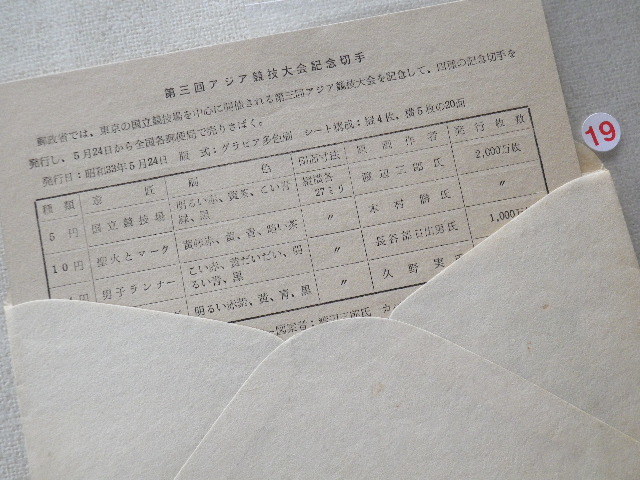 第三回アジア競技大会記念切手
郵政省では、東京の国立競技場を中心に開催される第三回アジア競技大会を記念して、四種の記念切手を
発行し、5月24日から全国各郵便局で売りさばく。
発行日：昭和33年5月24日 版式：グラビア多色刷 シート構成：縦4枚、横5枚の20面
種類 意匠 刷色 印面寸法 原画作者 発行枚数
5円 国立競技場 明るい赤、黄茶、こい青緑、黒 縦横各27ミリ 渡辺三郎氏 2,000万枚
10円 聖火とマーク 黄、青、 〃 木村勝氏 〃
円 男子ランナー こい赤、黄だいだい、明るい青、黒 〃 長谷部日出男氏 1,000万
明るい赤 黄、青、黒 〃 久野実氏
19